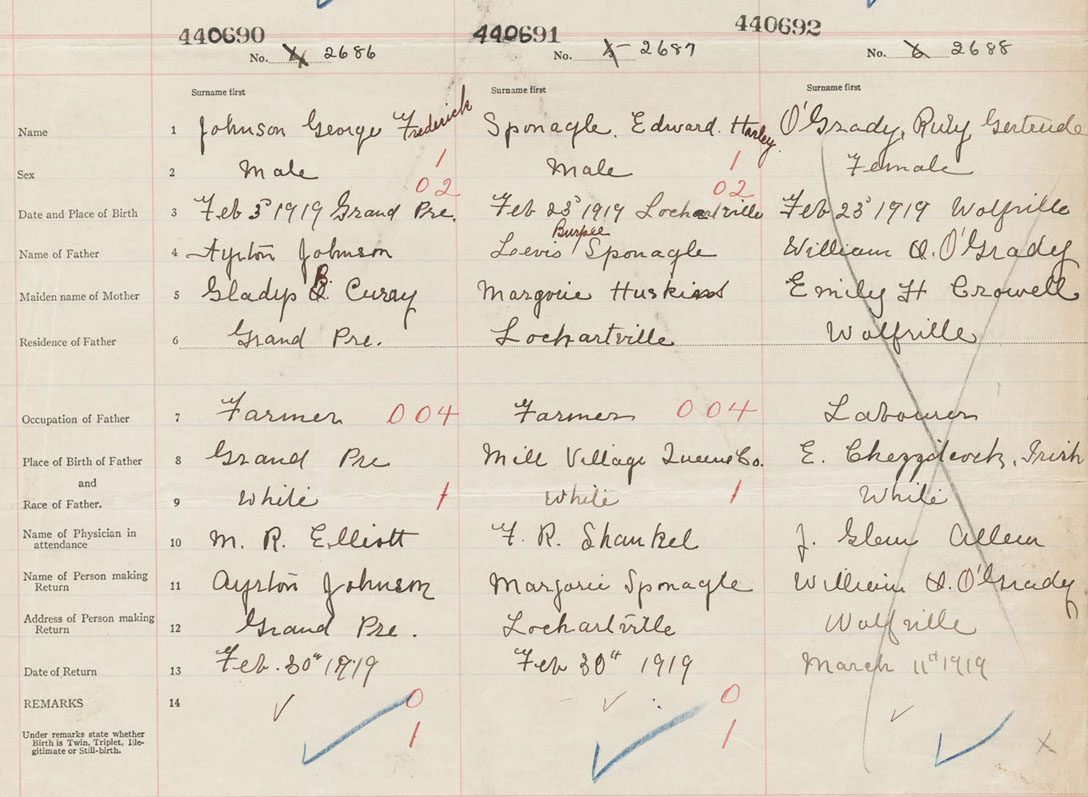 440690 440691 440692
No. 4 2686 No. 5 2687 No. 6 2688
Surname first Surname first Surname first
Name 1 Johnson George Frederick Sponagle, Edward. Harley O'Grady, Ruby Gertrude
1 1
Sex 2 Male Male Female
02 02
Date and Place of Birth 3 Feb 3rd 1919 Grand Pre. Feb 23rd 1919 Lochartville Feb 23rd 1919 Wolfville
Burpee
Name of Father 4 Ayrton Johnson Lewis Sponagle William A. O'Grady
Maiden name of Mother 5 Gladys B. Curay Margorie Huskins Emily H Crowell
Residence of Father 6 Grand Pre. Lochartville Wolfville
Occupation of Father 7 Farmer 004 Farmer 004 Labourer
Place of Birth of Father 8 Grand Pre Mill Village Queens Co. E. Chezzetcook, Irish
and
Race of Father. 9 White 1 White 1 White
Name of Physician in attendance 10 M. R. Elliott F. R. Shankel J. Glenn Allen
Name of Person making Return 11 Ayrton Johnson Marjorie Sponagle William A. O'Grady
Address of Person making Return 12 Grand Pre. Lochartville Wolfville
Date of Return 13 Feb. 30th 1919 Feb 30th 1919 March 11th 1919
REMARKS 14 0 0
Under remarks state whether
Birth is Twin, Triplet, Ille-
gitimate or Still-birth. 1 1